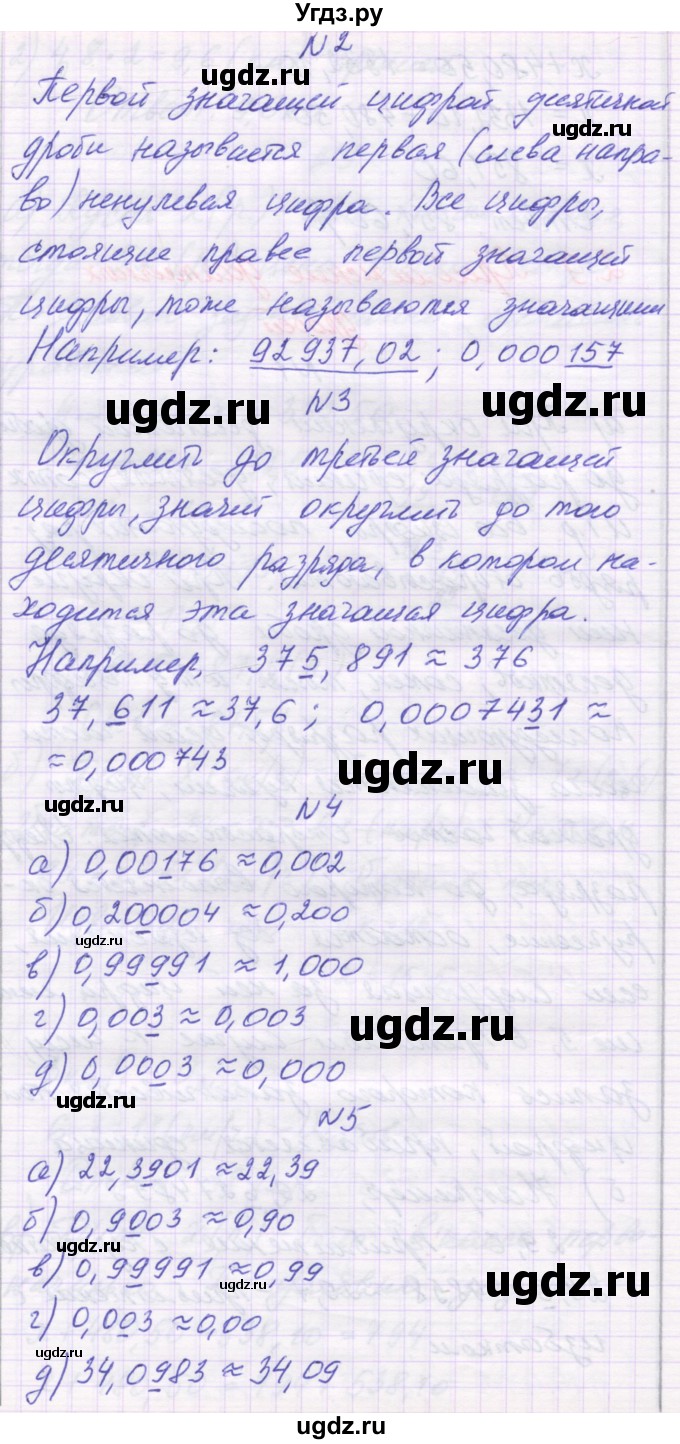 Угдз.ру
N2
Первой значащей цифрой десятичной
ugdz.ru
дроби называется первая (слева напра-
ugdz.ru
во) ненулевая цифра. Все цифры,
стоящие правее первой значащей
цифры, тоже называются значащими
Например: 92 937,02 ; 0,000157
ugdz.ru
ugdz.ru
N3
Округлить до третьей значащей
цифры, значит округлить до того
десятичного разряда, в котором на-
ходится эта значащая цифра.
Например, 375,891 ≈ 376
37,611 ≈ 37,6 ; 0,0007431 ≈
≈ 0,000743
ugdz.ru
ugdz.ru
N4
а) 0,00176 ≈ 0,002
б) 0,200004 ≈ 0,200
ugdz.ru
в) 0,99991 ≈ 1,000
г) 0,003 ≈ 0,003
ugdz.ru
д) 0,0003 ≈ 0,000
ugdz.ru
N5
а) 22,3901 ≈ 22,39
б) 0,9003 ≈ 0,90
ugdz.ru
в) 0,99991 ≈ 0,99
ugdz.ru
ugdz.ru
г) 0,003 ≈ 0,00
ugdz.ru
д) 34,0983 ≈ 34,09
ugdz.ru